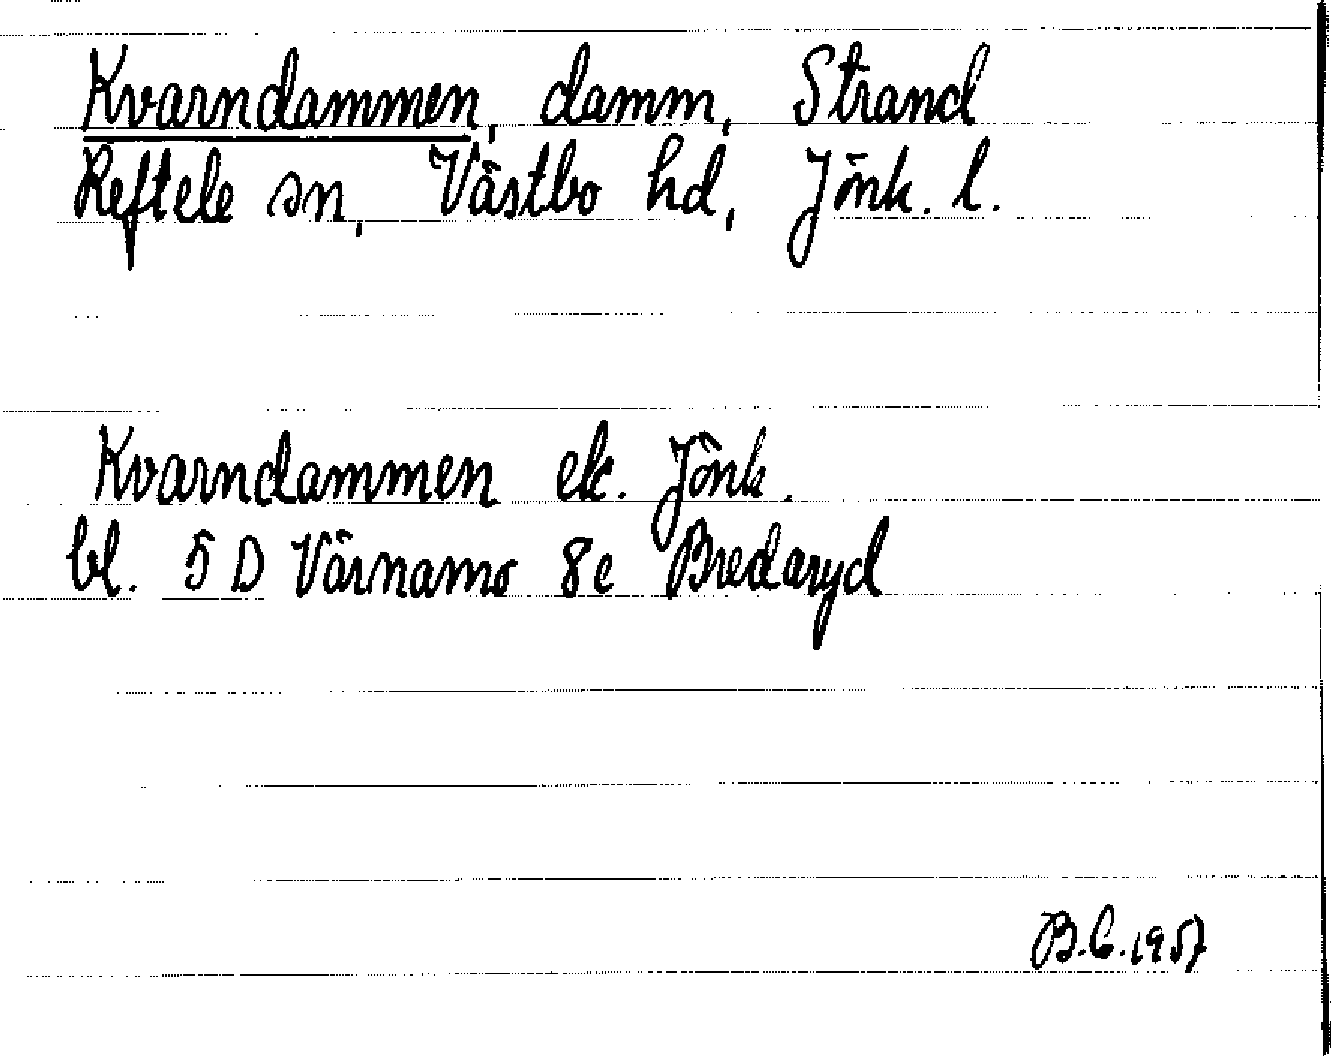 Kvarndammen, damm, Strand
Reftele sn, Västbo hd, Jönk. l.
Kvarndammen ek. Jönk.
bl. 5 D Värnamo 8e Bredaryd
B.C. 1957